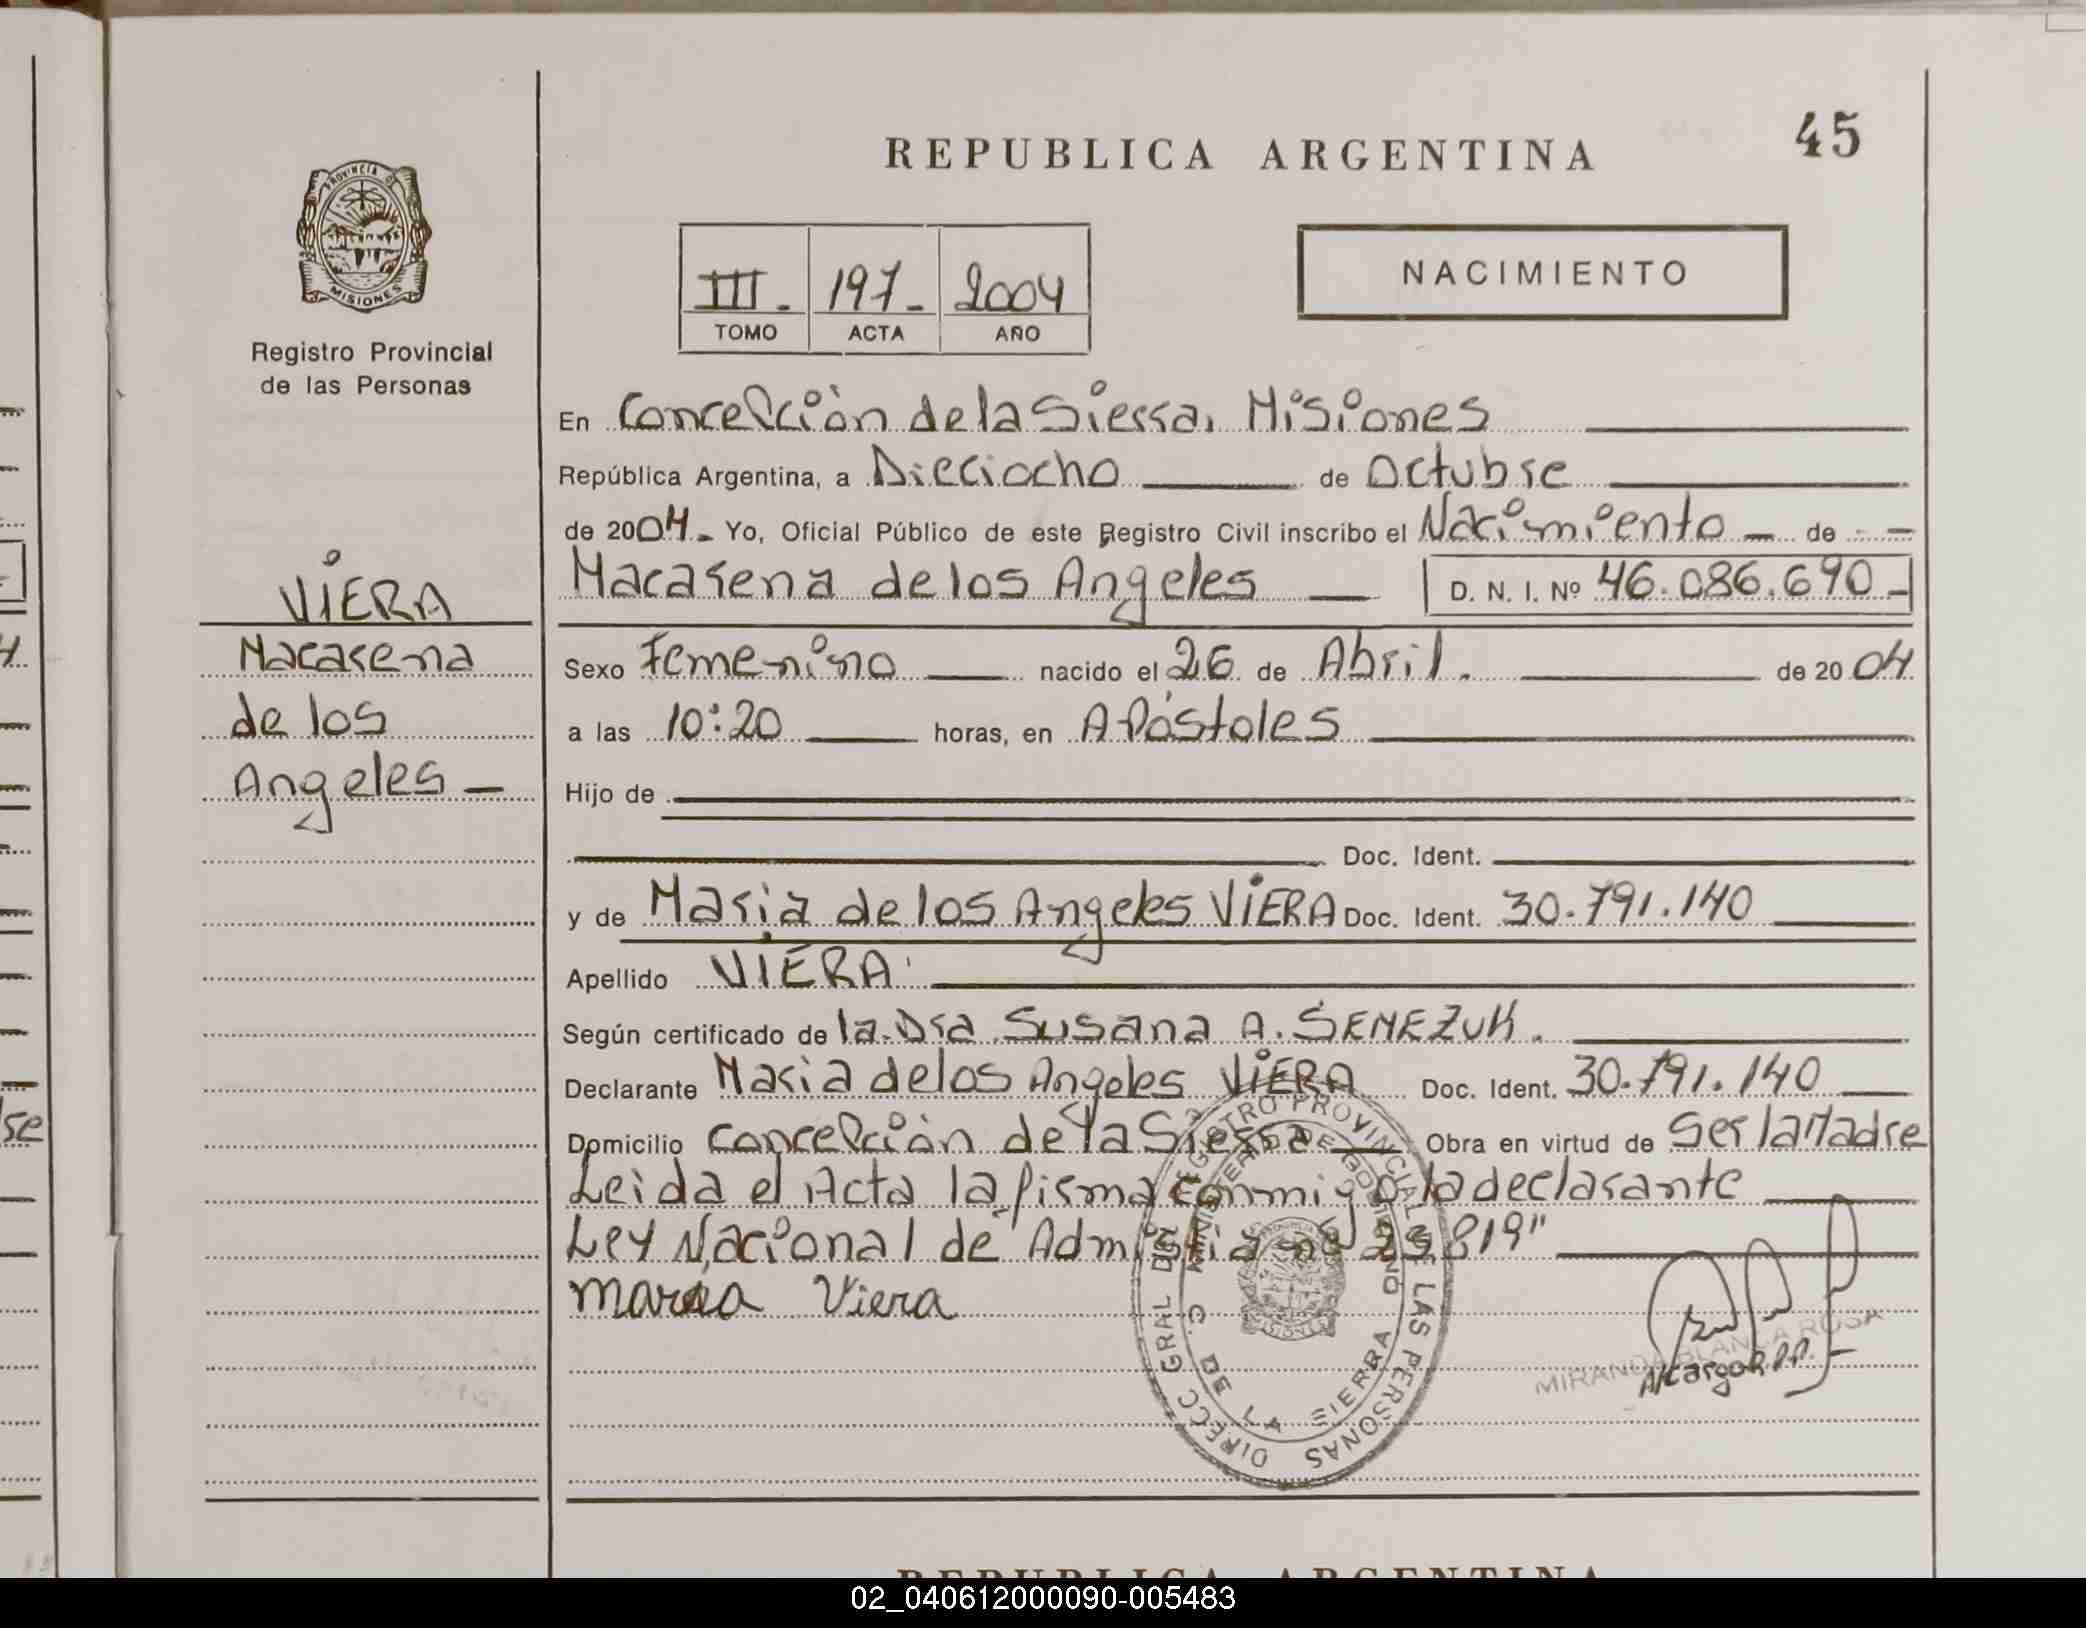 45
REPUBLICA ARGENTINA
PROVINCIA DE
MISIONES
Registro Provincial
de las Personas
III - 197 - 2004
TOMO ACTA AÑO
NACIMIENTO
En Concepción de la Sierra, Misiones
República Argentina, a Dieciocho de Octubre
de 2004 - Yo, Oficial Público de este Registro Civil inscribo el Nacimiento - de
Macarena de los Angeles D. N. I. Nº 46.086.690 -
VIERA
Macarena
de los
Angeles -
Sexo Femenino nacido el 26 de Abril. de 2004
a las 10:20 horas, en Apóstoles
Hijo de
Doc. Ident.
y de Maria de los Angeles VIERA Doc. Ident. 30.791.140
Apellido VIERA
Según certificado de la Dra Susana A. SEMEZUK.
Declarante Maria de los Angeles VIERA Doc. Ident. 30.791.140
Domicilio Concepción de la Sierra Obra en virtud de Ser la Madre
Leida el Acta la firma conmigo la declarante
Ley Nacional de Admistia nº 25819"
maria Viera
DIRECC GRAL DEL REGISTRO PROVINCIAL DE LAS PERSONAS
MINISTERIO DE GOBIERNO
C. DE LA SIERRA
MIRANDA BLANCA ROSA
A/cargo R.P.P.
REPUBLICA ARGENTINA
02_040612000090-005483